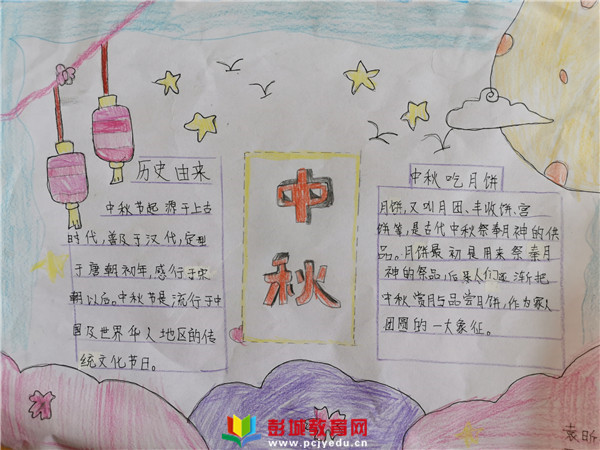 历史由来
中秋节起源于上古
时代,普及于汉代,定型
于唐朝初年,盛行于宋
朝以后。中秋节是流行于中
国及世界华人地区的传
统文化节日。
中
秋
中秋吃月饼
月饼,又叫月团、丰收饼、宫
饼等,是古代中秋祭奉月神的供
品。月饼最初是用来祭奉月
神的祭品,后来人们逐渐把
中秋赏月与品尝月饼,作为家人
团圆的一大象征。
袁昕
彭城教育网
www.pcjyedu.cn